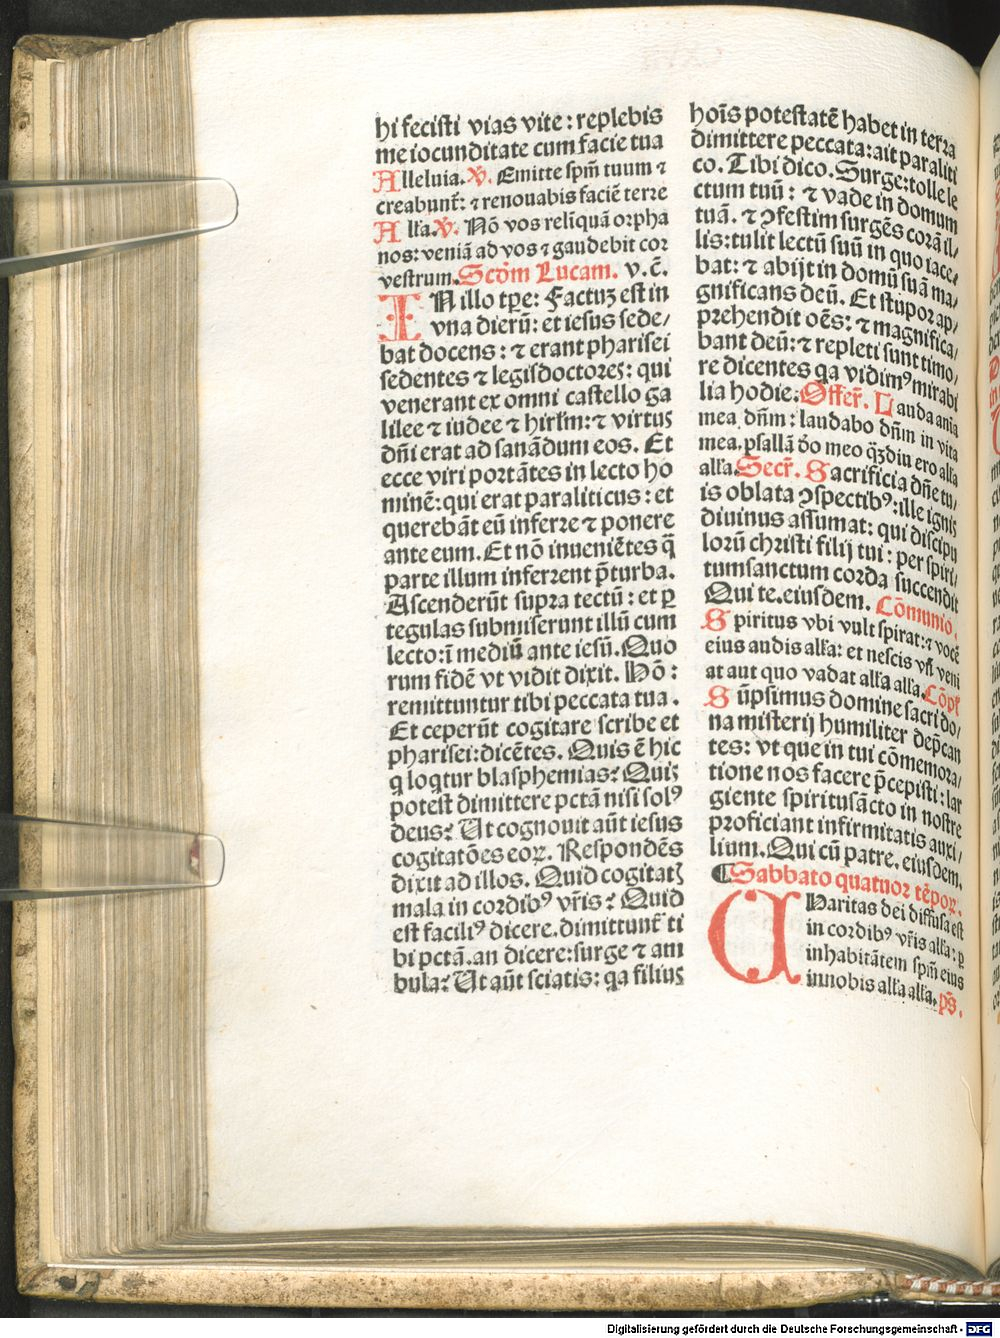 hi fecisti vias vite: replebis
me iocunditate cum facie tua
Alleluia. V. Emitte spm̄ tuum ⁊
creabunt̄: ⁊ renouabis faciē terre
Alľa. V. Nō vos relīquā orpha
nos: veniā ad vos ⁊ gaudebit cor
vestrum. Scōm Lucam. v. c̄.
IN illo tꝑe: Factuꝫ est in
vna dierū: et iesus sede/
bat docens: ⁊ erant pharisei
sedentes ⁊ legisdoctores: qui
venerant ex omni castello ga
lilee ⁊ iudee ⁊ hirl̄m: ⁊ virtus
dn̄i erat ad sanādum eos. Et
ecce viri portātes in lecto ho
minē: qui erat paraliticus: et
querebāt eū inferre ⁊ ponere
ante eum. Et nō inueniētes q̄
parte illum inferrent p̄ turba.
Ascenderūt supra tectū: et ꝑ
tegulas submiserunt illū cum
lecto: ī mediū ante iesū. Quo
rum fidē vt vidit dixit. Hō:
remittuntur tibi peccata tua.
Et ceperūt cogitare scribe et
pharisei: dicētes. Quis ē hic
q loqtur blasphemias? Quis
potest dimittere pctā nisi solꝰ
deus? Ut cognouit aūt iesus
cogitatōes eoꝝ. Respondēs
dixit ad illos. Quid cogitatꝭ
mala in cordibꝰ vr̄is? Quid
est faciliꝰ dicere. dimittunt̄ ti
bi pctā. an dicere: surge ⁊ am
bula? Ut aūt sciatis: qa filius
hoīs potestatē habet in terra
dimittere peccata: ait paraliti
co. Tibi dico. Surge: tolle le
ctum tuū: ⁊ vade in domum
tuā. ⁊ ꝯfestim surgēs corā il/
lis: tulit lectū suū in quo iace/
bat: ⁊ abijt in domū suā ma/
gnificans deū. Et stupor ap/
prehendit oēs: ⁊ magnifica/
bant deū: ⁊ repleti sunt timo/
re dicentes qa vidimꝰ mirabi
lia hodie. Offer̄. Lauda aīa
mea dn̄m: laudabo dn̄m in vita
mea. psallā deo meo qꝫdiu ero alľa
alľa. Secr̄. Sacrificia dn̄e tu/
is oblata ꝯspectibꝰ: ille ignis
diuinus assumat: qui discipu
lorū christi filij tui: per spiri/
tumsanctum corda succendit
Qui te. eiusdem. Cōmunio.
Spiritus vbi vult spirat: ⁊ vocē
eius audis alľa: et nescis vn̄ veni
at aut quo vadat alľa alľa. Cōpl̄
Sūpsimus domine sacri do/
na misterij humiliter dep̄can
tes: vt que in tui cōmemora/
tione nos facere p̄cepisti: lar
giente spiritusācto in nostre
proficiant infirmitatis auxi/
lium. Qui cū patre. eiusdem.
¶ Sabbato quatuor tēpoꝝ.
CHaritas dei diffusa est
in cordibꝰ vr̄is alľa: ꝑ
inhabitātem spm̄ eius
in nobis alľa alľa. ps̄.
Digitalisierung gefördert durch die Deutsche Forschungsgemeinschaft - DFG